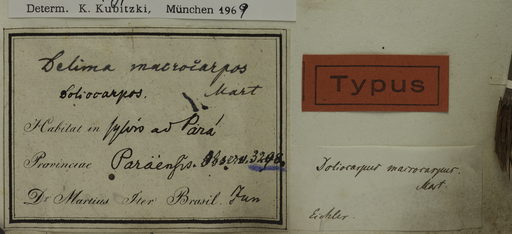 Determ. K. Kubitzki, München 1969
Delima macrocarpos
Doliocarpos. Mart
Habitat in sylvis ad Pará
Provinciae Paraënsis. Observ. 3298.
Dr Martius Iter Brasil. Jun
Typus
Doliocarpus macrocarpus.
Mart.
Eichler.